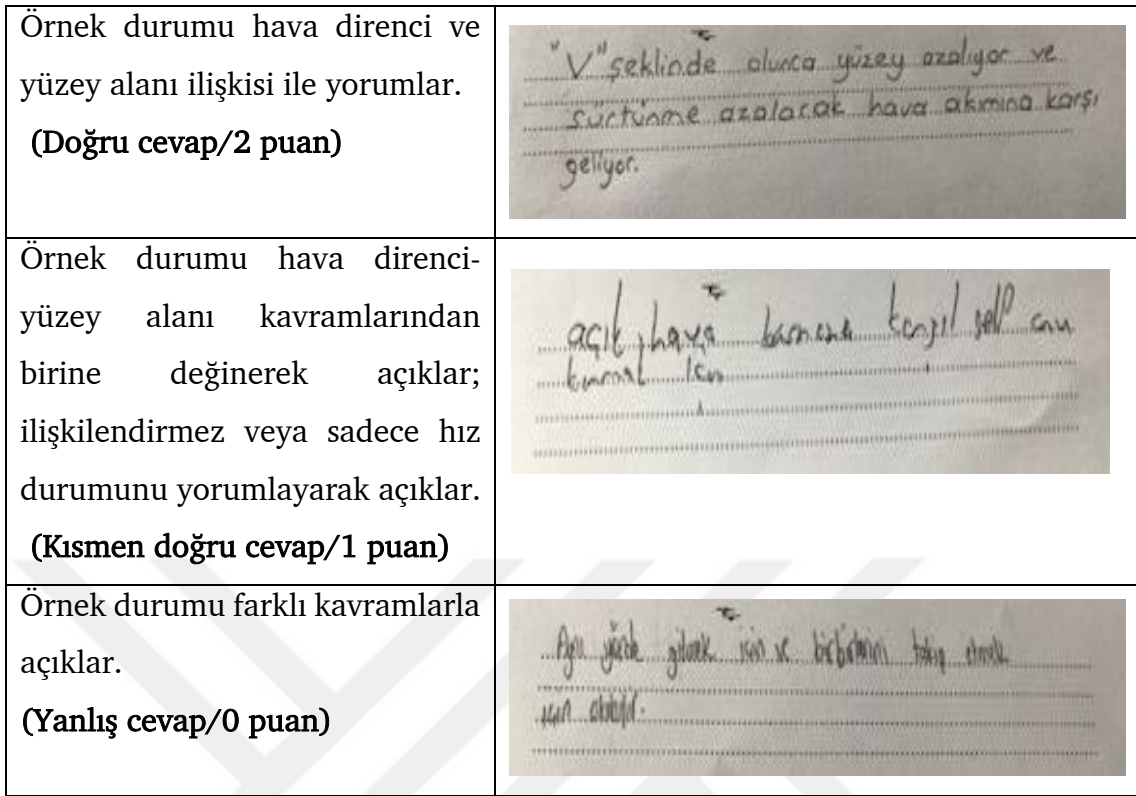 Örnek durumu hava direnci ve
yüzey alanı ilişkisi ile yorumlar.
(Doğru cevap/2 puan)
"V" şeklinde olunca yüzey azalıyor ve
sürtünme azalacak hava akımına karşı
geliyor.
Örnek durumu hava direnci-
yüzey alanı kavramlarından
birine değinerek açıklar;
ilişkilendirmez veya sadece hız
durumunu yorumlayarak açıklar.
(Kısmen doğru cevap/1 puan)
açık hava
için
Örnek durumu farklı kavramlarla
açıklar.
(Yanlış cevap/0 puan)
için ve birbirini takip etmek
için